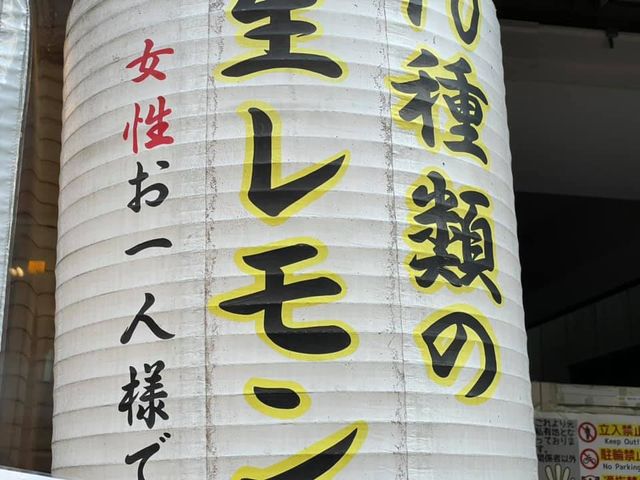 種類の
生レモン
女性お一人様で
これより先
立入禁止
Keep Out!
駐輪禁止
No Parking